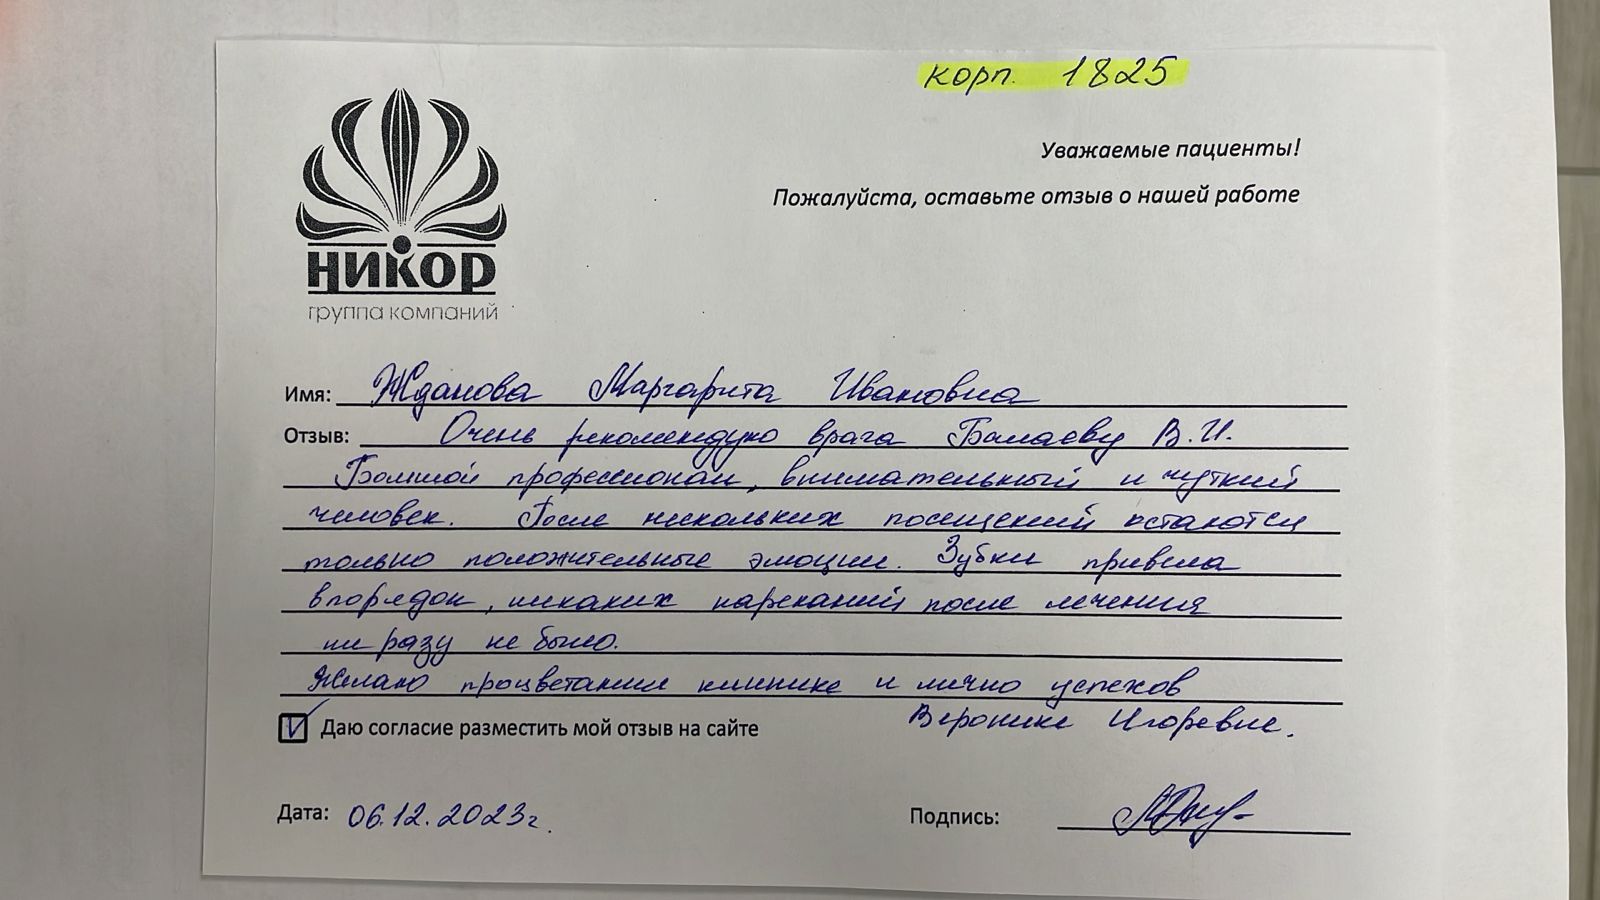 корп. 1825
Уважаемые пациенты!
Пожалуйста, оставьте отзыв о нашей работе
НИКОР
группа компаний
Имя: Жданова Маргарита Ивановна
Отзыв: Очень рекомендую врача Балаеву В.И.
Большой профессионал, внимательный и чуткий
человек. После нескольких посещений остаются
только положительные эмоции. Зубки привела
впорядок, никаких нареканий после лечения
ни разу не было.
Желаю процветания клинике и лично успехов
Веронике Игоревне.
Даю согласие разместить мой отзыв на сайте
Дата: 06.12.2023г.
Подпись: